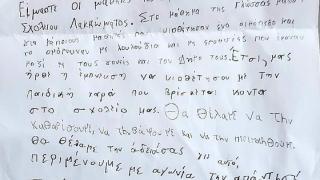 Είμαστε οι μαθητές
Σχολείου Λακκώματος. Στο μάθημα της Γλώσσας
για κάποιους μαθητές που υιοθέτησαν ένα
το ομόρφυναν με λουλούδια και τη
μαζί με τους γονείς και τον Δήμο τους. Έτσι, μας
ήρθε η έμπνευση να υιοθετήσουμε με την
παιδική χαρά που βρίσκεται κοντά
στο σχολείο μας. Θα θέλαμε να την
καθαρίσουμε, να την βάψουμε και να την
θα θέλαμε την άδειά σας γι' αυτό.
Περιμένουμε με αγωνία την απάντησή